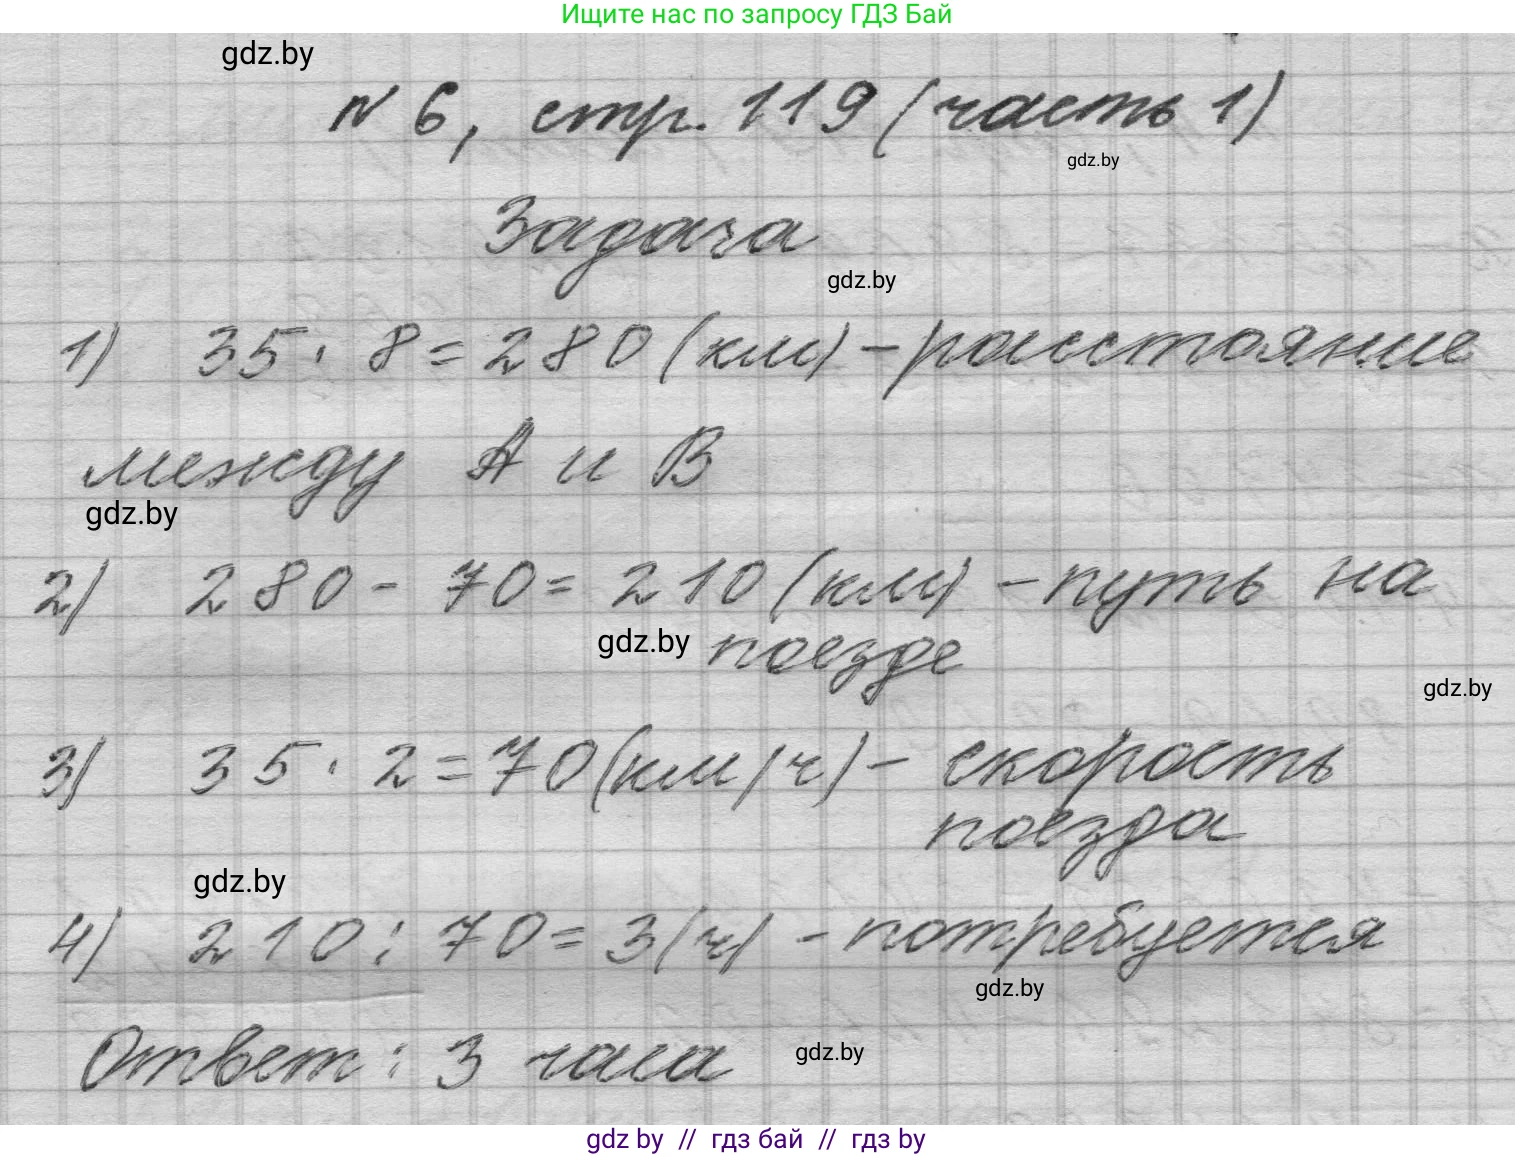 Ищите нас по запросу ГДЗ Бай
gdz.by
№ 6, стр. 119 (часть 1)
gdz.by
Задача
gdz.by
1) 35 · 8 = 280 (км) – расстояние
между А и В
gdz.by
2) 280 - 70 = 210 (км) – путь на
gdz.by поезде
gdz.by
3) 35 · 2 = 70 (км/ч) – скорость
поезда
gdz.by
4) 210 : 70 = 3 (ч) - потребуется
gdz.by
Ответ : 3 часа
gdz.by
gdz by // гдз бай // гдз by